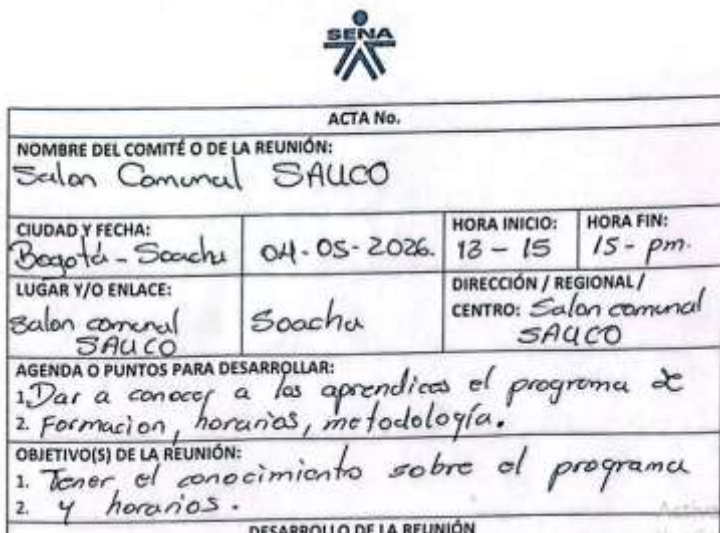 SENA
ACTA No.
NOMBRE DEL COMITÉ O DE LA REUNIÓN:
Salon Comunal SAUCO
CIUDAD Y FECHA:
Bogotá - Soacha
04-05-2026.
HORA INICIO:
13 - 15
HORA FIN:
15 - pm.
LUGAR Y/O ENLACE:
Salon comunal
SAUCO
Soacha
DIRECCIÓN / REGIONAL /
CENTRO: Salon comunal
SAUCO
AGENDA O PUNTOS PARA DESARROLLAR:
1. Dar a conocer a los aprendices el programa de
2. Formacion, horarios, metodología.
OBJETIVO(S) DE LA REUNIÓN:
1. Tener el conocimiento sobre el programa
2. y horarios.
DESARROLLO DE LA REUNIÓN